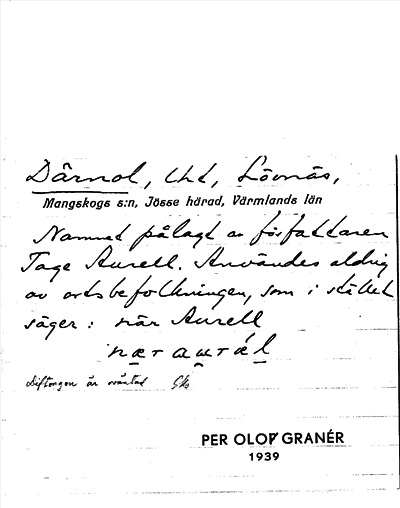 Därnol, Uhd, Lövnäs,
Mangskogs s:n, Jösse härad, Värmlands län
Namnet pålagt av författaren
Tage Aurell. Användes aldrig
av ortsbefolkningen, som i stället
säger: när Aurell
Diftongen är oväntad
PER OLOF GRANÉR
1939